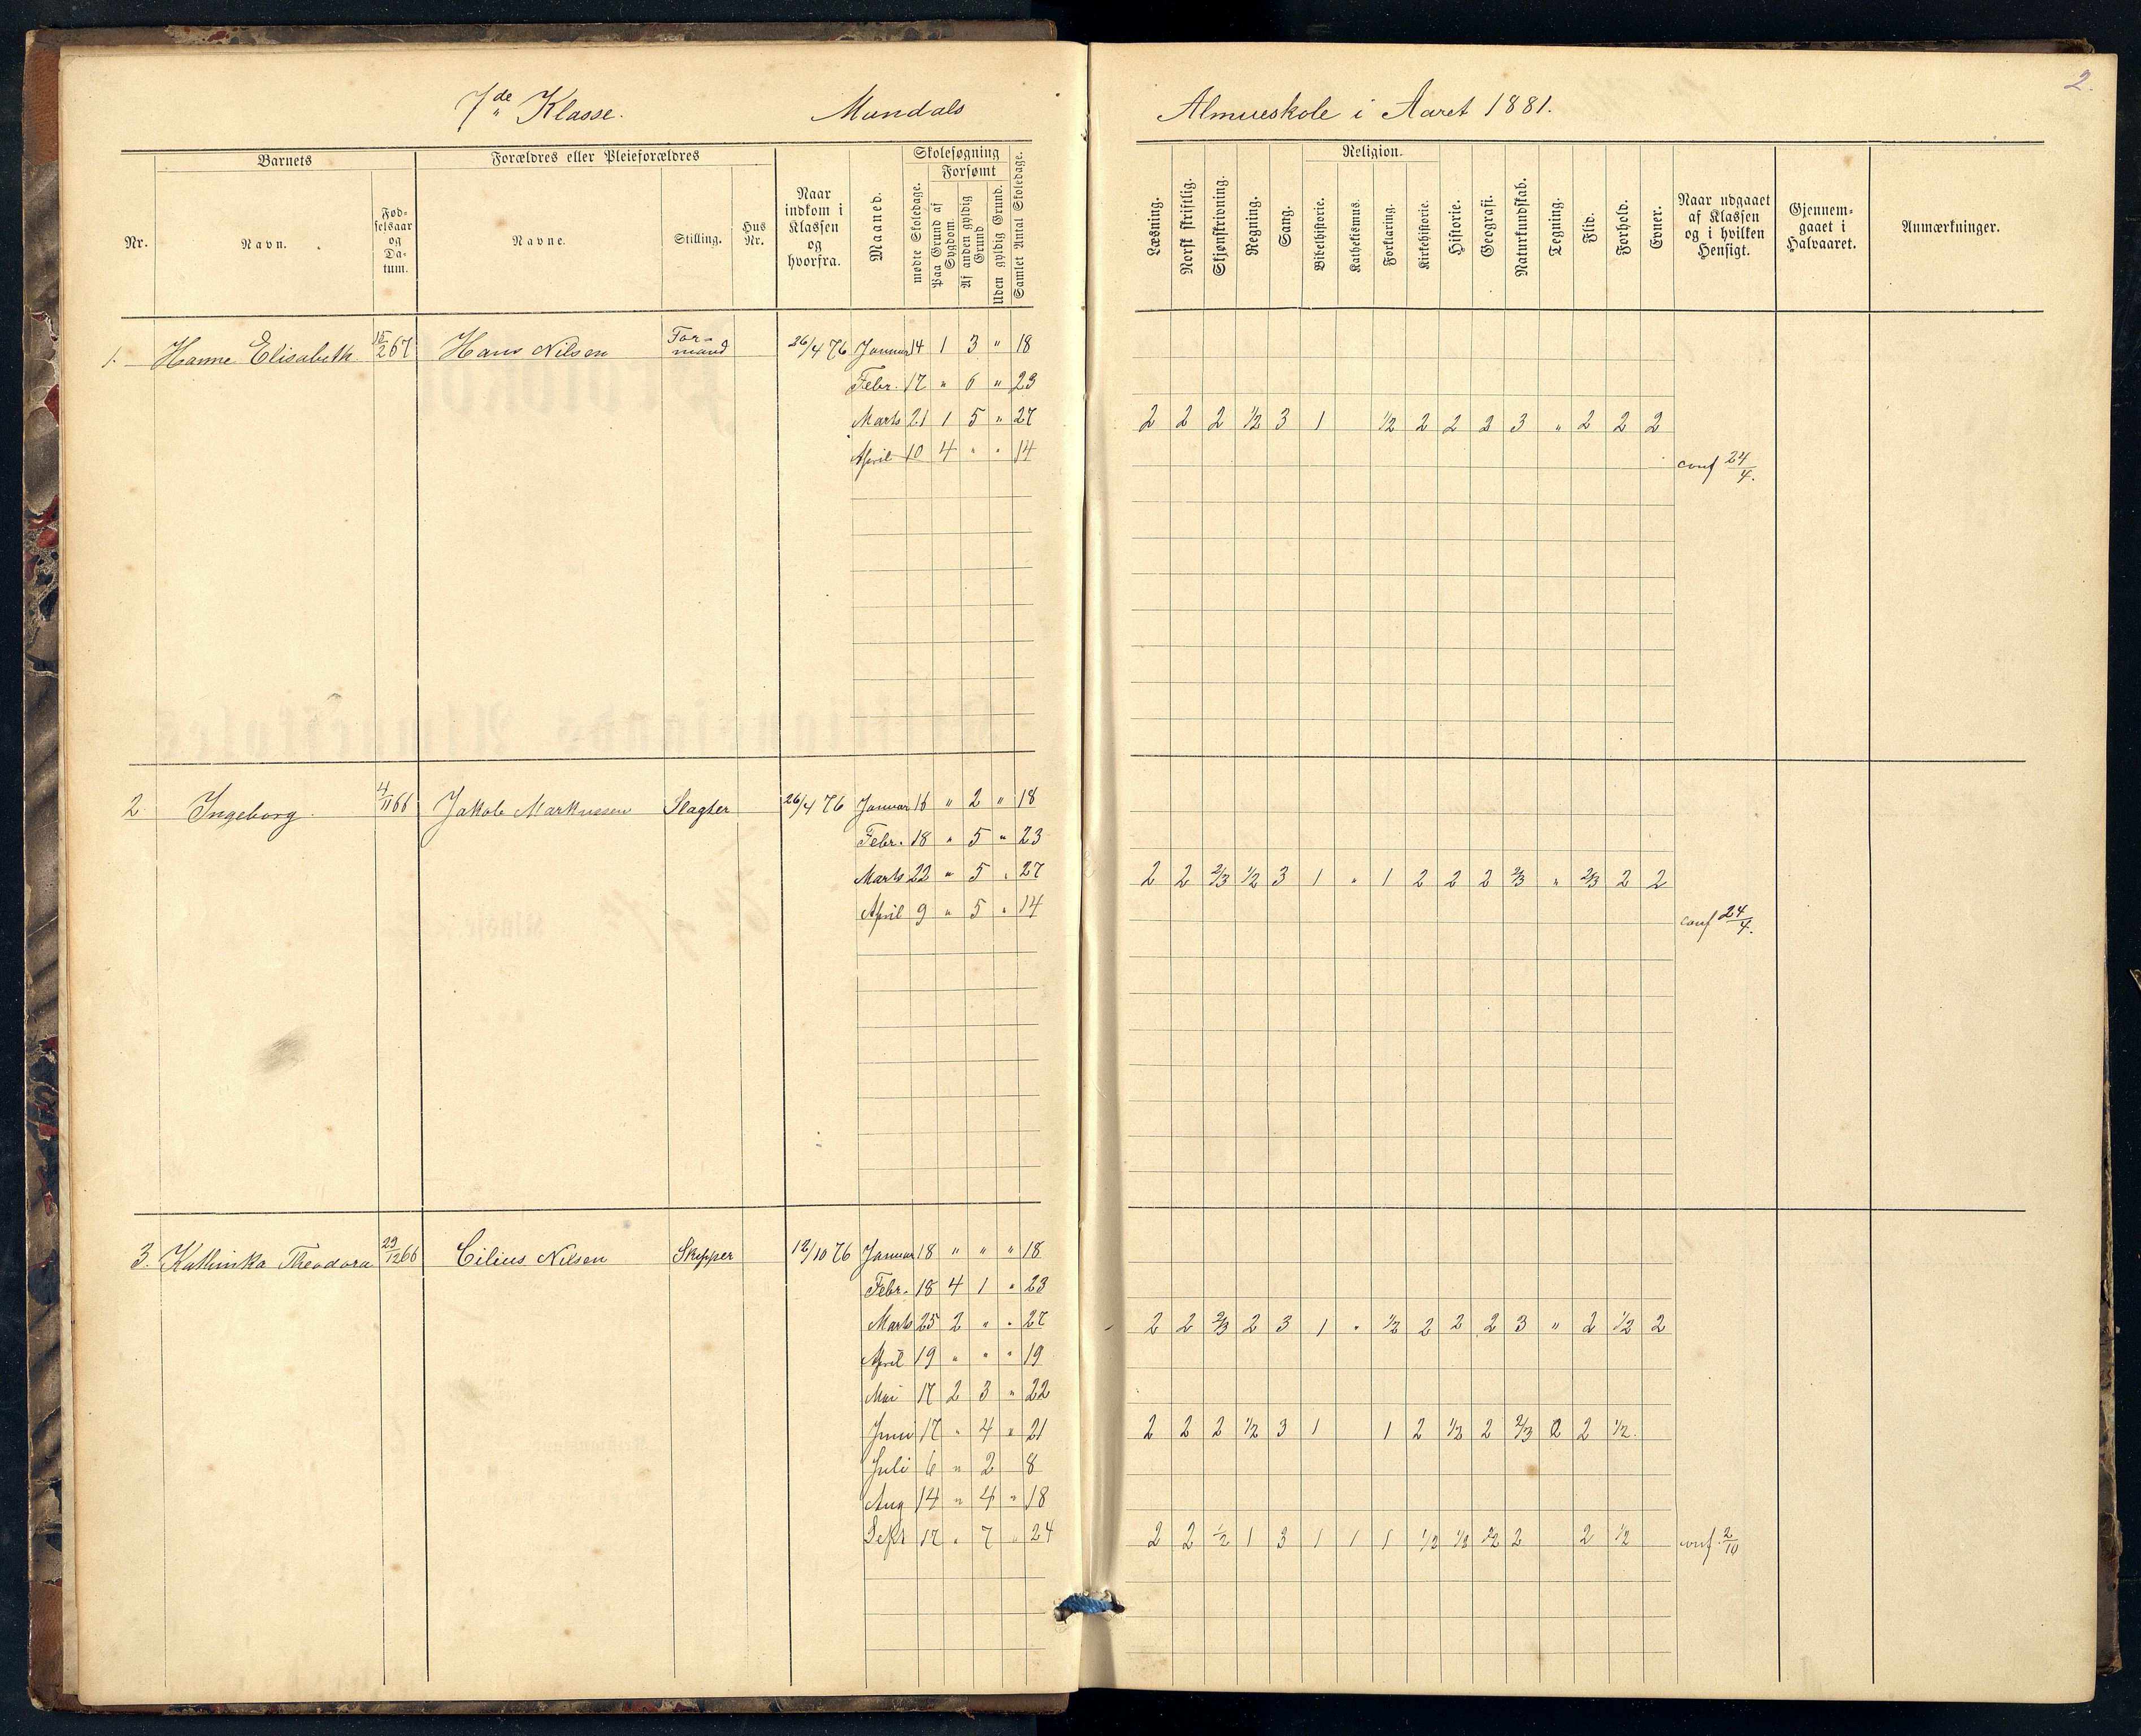 2.
7de Klasse. Mandals Almueskole i Aaret 1881.
Nr. Barnets Forældres eller Pleieforældres Naar indkom i Klassen og hvorfra. Maaned. Skolesøgning Religion. Naar udgaaet af Klassen og i hvilken Hensigt. Gjennemgaaet i Halvaaret. Anmærkninger.
Navn. Fødselsaar og Datum. Navne. Stilling. Hus Nr. mødte Skoledage. Forsømt Paa Grund af Sygdom. Af anden gyldig Grund Uden gyldig Grund. Samlet Antal Skoledage.
Læsning. Norsk skriftlig. Skjønskrivning. Regning. Sang. Bibelhistorie. Kathekismus. Forklaring. Kirkehistorie. Historie. Geografi. Naturkundskab. Tegning. Flid. Forhold. Evner.
1. Hanne Elisabeth 15/2 67 Hans Nilsen Formand 26/4 76 Januar 14 1 3 " 18
Febr. 17 " 6 " 23
Marts 21 1 5 " 27 2 2 2 1/2 3 1 1/2 2 2 2 3 " 2 2 2
April 10 4 " " 14 conf 24/4.
2 Ingeborg 4/11 66 Jakob Markussen Slagter 26/4 76 Januar 16 " 2 " 18
Febr. 18 " 5 " 23
Marts 22 " 5 " 27 2 2 2/3 1/2 3 1 " 1 2 2 2 2/3 " 2/3 2 2
April 9 " 5 " 14 conf 24/4.
3. Kathinka Theodora 29/12 66 Cilius Nilsen Skipper 12/10 76 Januar 18 " " " 18
Febr. 18 4 1 " 23
Marts 25 2 " " 27 2 2 2/3 2 3 1 " 1/2 2 2 2 3 " 2 1/2 2
April 19 " " " 19
Mai 17 2 3 " 22
Juni 17 " 4 " 21 2 2 2 1/2 3 1 1 2 1/2 2 2/3 2 2 1/2.
Juli 6 " 2 8
Aug 14 " 4 " 18
Sept 17 " 7 " 24 2 2 1/2 1 3 1 1 1 1/2 1/2 1/2 2 2 1/2 conf. 2/10